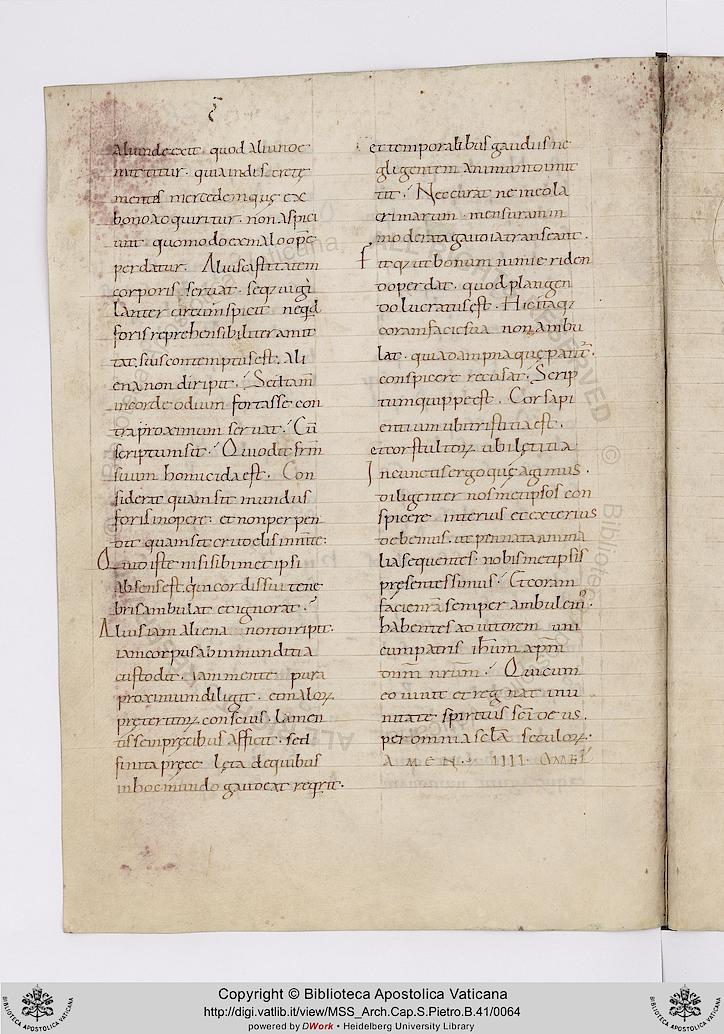 aliunde exit. quod aliunde
mittitur. qua indiscrete
mentis mercedemquę ex
bono adquiritur. non aspici
unt quomodo ex malo opẽ
perdatur. Alius castitatem
corporis seruat. seq; uigi
lanter circũspicit neqd
foris reprehensibiliter amit
tat. suis contemptus est. ali
ena non diripit. Sed tam̃
in corde odium fortasse con
tra proximum seruat. Cũ
scriptum sit. Qui odit frm̃
suum homicida est. Con
siderat quam sit mundus
foris in opere. et non perpen
dit quam sit crudelis in mẽte.
Quid iste nisi sibimet ipsi
absens est. qui in cordis sui tene
bris ambulat et ignorat.
Alius iam aliena non diripit.
iam corpus ab inmunditia
custodit. iam mente pura
proximum diligit. et malorꝝ
pręteritorꝝ conscius. lamen
tis sem pręcibus afficit. sed
finita pręce lęta de quibus
in hoc mundo gaudeat reqrit.
et temporalibus gaudiis ne
gligentem animum dimit
tit. Nec curat ne in cola
crimarum mensuram in
moderata gaudia transeant.
fitq; ut bonum nimie riden
do perdat. quod plangen
do lucratus est. Hic itaq;
coram facie sua non ambu
lat. quia dampna quę patit̃.
conspicere recusat. Scrip
tum quippe est. Cor sapi
entium ubi tristitia est.
et cor stultorꝝ ubi lętitia
In cunctis ergo quę agimus.
diligenter nosmetipsos con
spicere interius et exterius
debemus. ut pennata anima
lia sequentes. nobismetipsis
presentessimus. Et coram
facie nr̃a semper ambulem.
habentes adiutorem uni
cum patris ih̃um xp̃m
dñm nr̃um. Qui cum
eo uiuit et regnat in u
nitate spiritus sc̃i deus.
per omnia sc̃la seculorꝝ.
AMEN. IIII. OMEL̃
Copyright © Biblioteca Apostolica Vaticana
http://digi.vatlib.it/view/MSS_Arch.Cap.S.Pietro.B.41/0064
powered by DWork • Heidelberg University Library
BIBLIOTECA APOSTOLICA VATICANA
BIBLIOTECA APOSTOLICA VATICANA